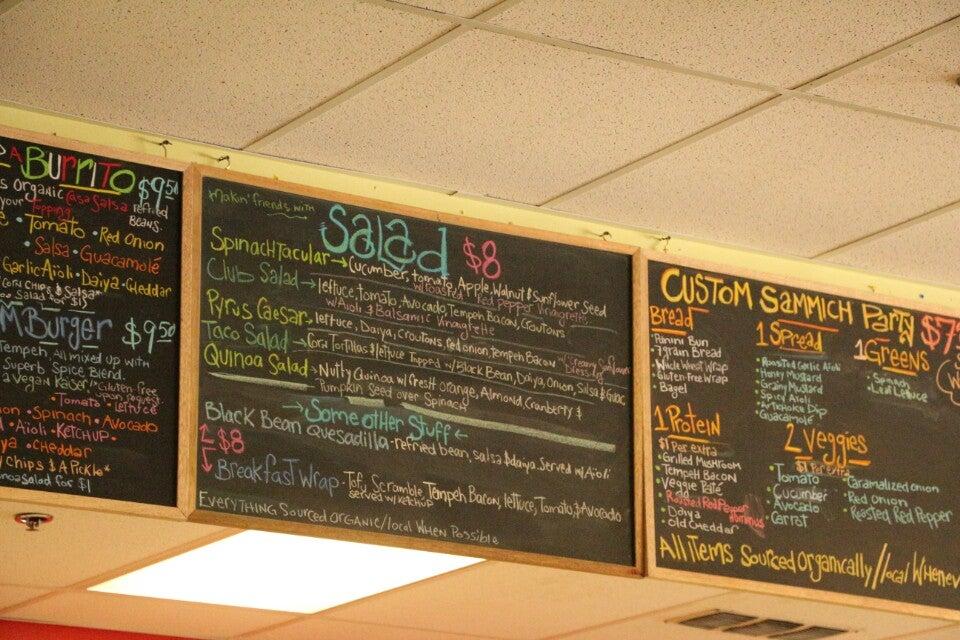 A BURRITO $9.50
Organic Casa Salsa refried
your Topping Beans.
Tomato • Red Onion
• Salsa • Guacamolé
Garlic Aioli • Daiya • Cheddar
Corn Chips & Salsa*
Salad for $1*
M BURGER $9.50
Tempeh All mixed up with
Superb Spice Blend.
a Vegan Kaiser *Gluten-free
upon request
• Tomato • Lettuce
• Spinach • Avocado
• Aioli • KETCHUP •
• CHeddar
Chips & A Pickle*
Salad for $1
Makin' friends with
Salad $8
Spinach Tacular → Cucumber, tomato, Apple, Walnut & Sunflower Seed
w/ Roasted Red Pepper Vinagrette
Club Salad → lettuce, tomato, Avocado, Tempeh Bacon, Croutons
w/ Aioli & Balsamic Vinaigrette
Pyrus Caesar → lettuce, Daiya, Croutons, red onion, tempeh Bacon w/ Creamy Sunflower Dressing
Taco Salad → Corn Tortillas & lettuce Topped w/ Black Bean, Daiya, Onion, Salsa & Guac
Quinoa Salad → Nutty Quinoa w/ Fresh orange, Almond, Cranberry &
Pumpkin Seed over Spinach
→ Some other Stuff ←
Black Bean Quesadilla - refried bean, salsa & daiya served w/ Aioli
$8
Breakfast Wrap - Tofu Scramble, Tempeh Bacon, lettuce, Tomato, & Avocado
served w/ ketchup
Everything Sourced Organic/local When Possible
CUSTOM SAMMICH PARTY $7
Bread
Panini Bun
• 7 grain Bread
• Whole Wheat Wrap
• Gluten-Free Wrap
• Bagel
1 Spread
• Roasted Garlic Aioli
• Honey Mustard
• Grainy Mustard
• Spicy Aioli
• Artichoke Dip
• Guacamolé
1 Greens
• Spinach
• Leaf Lettuce
1 Protein
$1 Per extra
• Grilled Mushroom
• Tempeh Bacon
• Veggie Paté
• Roasted Red Pepper Hummus
• Daiya
• Old Cheddar
2 Veggies
$ Per Extra
• Tomato
• Cucumber
• Avocado
• Carrot
• Caramalized Onion
• Red Onion
• Roasted Red Pepper
All Items Sourced Organically//local Whenev